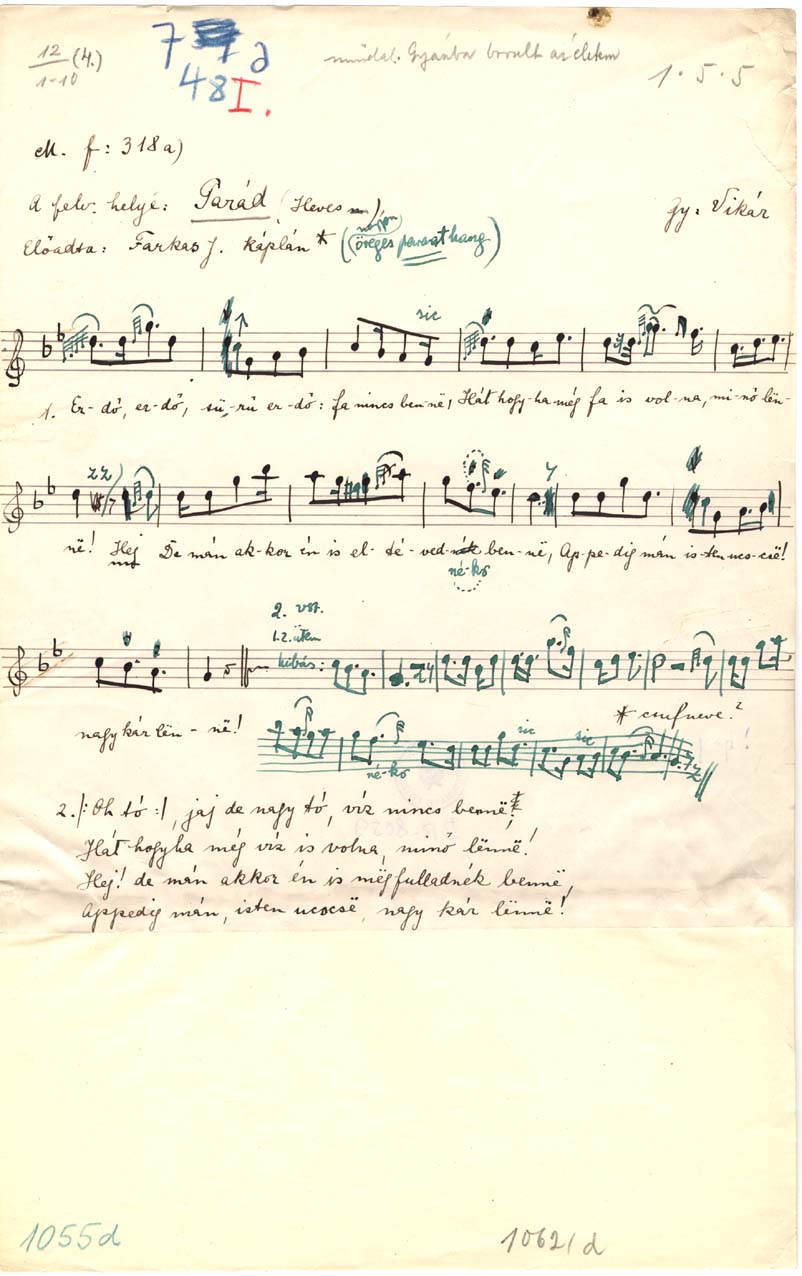 12 (4.)
1-10
7 a
48 I.
műdal. Gyászba borult az életem
1 · 5 · 5
M. f: 318a)
A felv. helye: Parád (Heves m)
Gy: Vikár
Előadta: Farkas J. Káplán * (nagyon öreges paraszt hang)
sic
1. Er-dő, er-dő, sü-rü er-dő: fa nincs ben-në, Hát hogy-ha-még fa is vol-na, mi-nő lën-
në! Hej De mán ak-kor én is el-té-ved-nék ben-në, Ap-pe-dig mán is-ten ucs-csë!
né-kö
2. vsz.
1. 2. ütem
hibás:
nagy kár lën-në!
* csufneve?
sic sic
né-kö
2. /: Oh tó :/, jaj de nagy tó, víz nincs bennë!
Hát hogyha még víz is volna, minő lënnë!
Hej! de mán akkor én is mëgfulladnék bennë,
Appedig mán, isten ucscsë, nagy kár lënnë!
1055d
1062/d